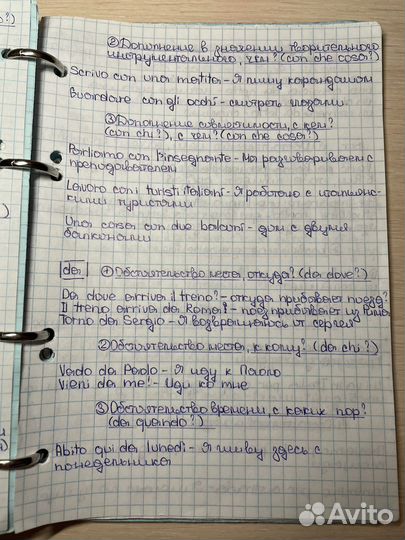 ② Дополнение в значении творительного
инструментального, чем? (con che cosa?)
Scrivo con una matita - Я пишу карандашом
Guardare con gli occhi - смотреть глазами
③ Дополнение совместимости, с кем?
(con chi?), с чем? (con che cosa?)
Parliamo con l'insegnante - Мы разговариваем с
преподавателем
Lavoro con i turisti italiani - Я работаю с итальянс-
кими туристами
Una casa con due balconi - дом с двумя
балконами
da ① Обстоятельство места, откуда? (da dove?)
Da dove arriva il treno? - откуда прибывает поезд?
Il treno arriva da Roma! - поезд прибывает из Рима
Torno da Sergio - Я возвращаюсь от Сергея
② Обстоятельство места, к кому? (da chi?)
Vado da Paolo - Я иду к Паоло
Vieni da me! - Иди ко мне
③ Обстоятельство времени, с каких пор?
(da quando?)
Abito qui da lunedì - Я живу здесь с
понедельника
Avito